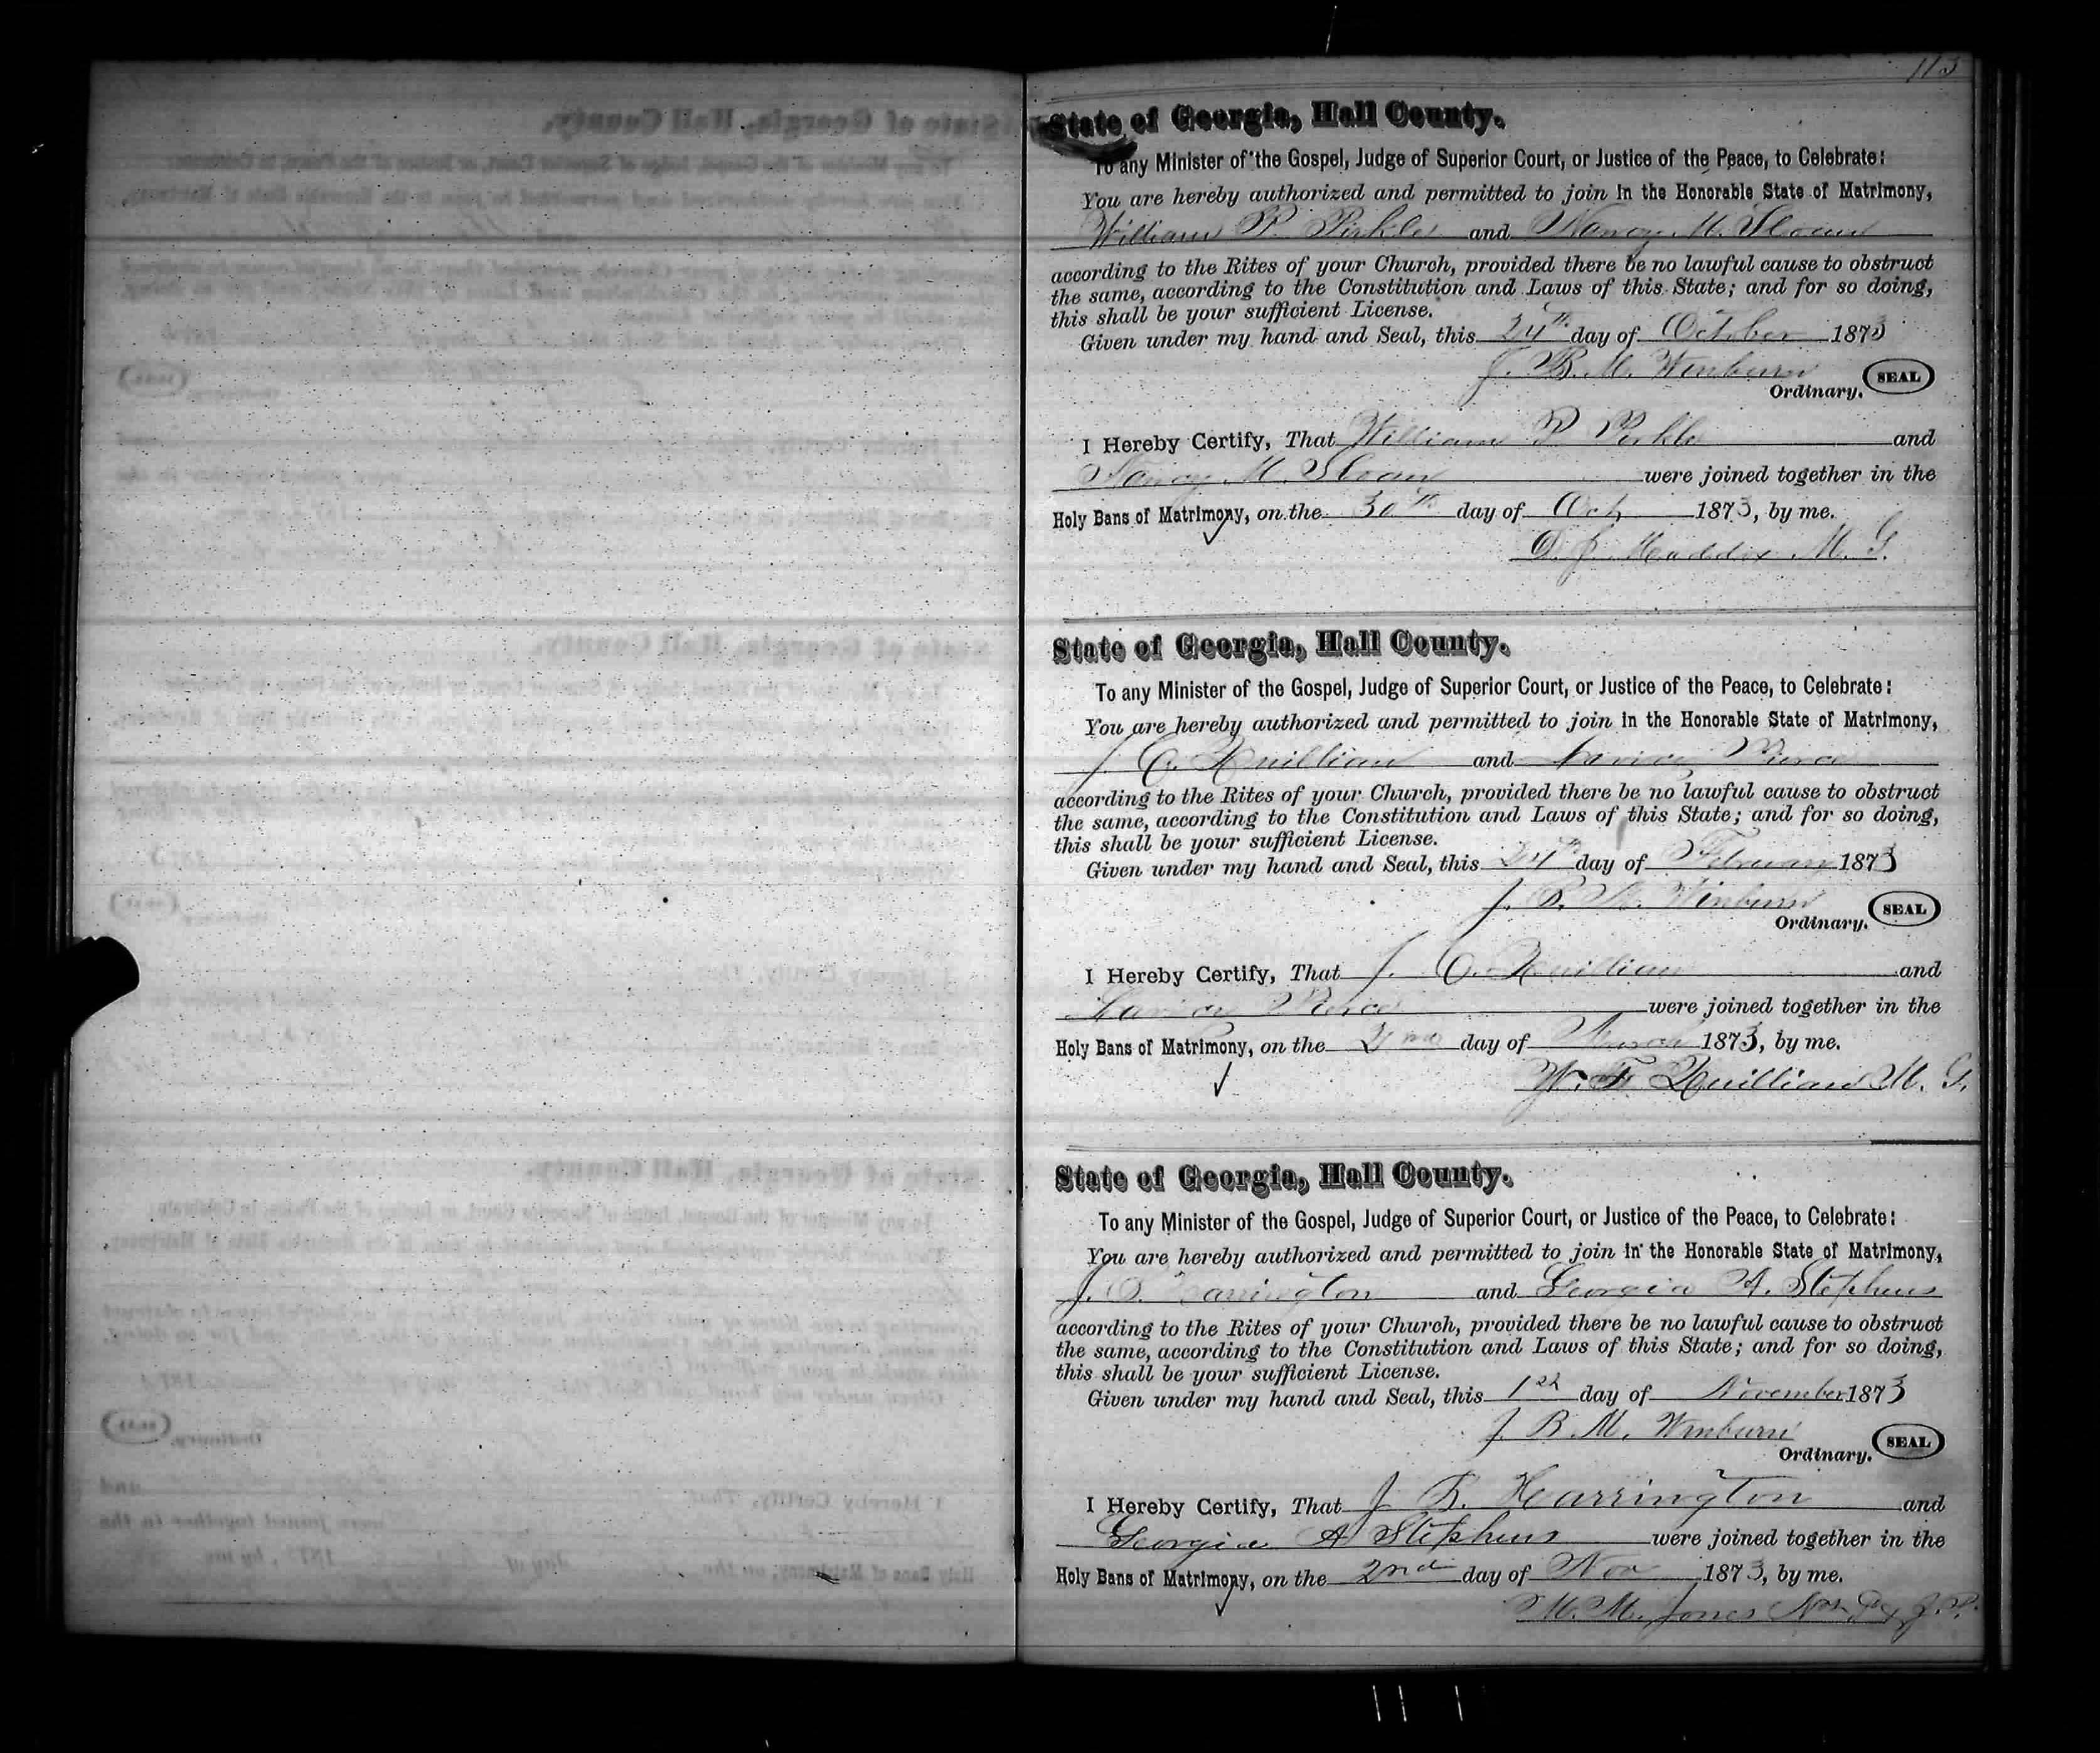 113
State of Georgia, Hall County.
To any Minister of the Gospel, Judge of Superior Court, or Justice of the Peace, to Celebrate:
You are hereby authorized and permitted to join in the Honorable State of Matrimony,
William P. Pirkle and Nancy M. Sloan
according to the Rites of your Church, provided there be no lawful cause to obstruct
the same, according to the Constitution and Laws of this State; and for so doing,
this shall be your sufficient License.
Given under my hand and Seal, this 24th day of October 1873
J. B. M. Winburn
Ordinary. SEAL
I Hereby Certify, That William P Pirkle and
Nancy M. Sloan were joined together in the
Holy Bans of Matrimony, on the 30th day of Oct 1873, by me.
D. J. Maddox M. G.
State of Georgia, Hall County.
To any Minister of the Gospel, Judge of Superior Court, or Justice of the Peace, to Celebrate:
You are hereby authorized and permitted to join in the Honorable State of Matrimony,
J. C. Quillian and Pierce
according to the Rites of your Church, provided there be no lawful cause to obstruct
the same, according to the Constitution and Laws of this State; and for so doing,
this shall be your sufficient License.
Given under my hand and Seal, this 24th day of February 1873
J. B. M. Winburn
Ordinary. SEAL
I Hereby Certify, That J. C. Quillian and
Pierce were joined together in the
Holy Bans of Matrimony, on the 2nd day of March 1873, by me.
W. F. Quillian M. G.
State of Georgia, Hall County.
To any Minister of the Gospel, Judge of Superior Court, or Justice of the Peace, to Celebrate:
You are hereby authorized and permitted to join in the Honorable State of Matrimony,
J. B. Harrington and Georgia A. Stephens
according to the Rites of your Church, provided there be no lawful cause to obstruct
the same, according to the Constitution and Laws of this State; and for so doing,
this shall be your sufficient License.
Given under my hand and Seal, this 1st day of November 1873
J. B. M. Winburn
Ordinary. SEAL
I Hereby Certify, That J. B. Harrington and
Georgia A Stephens were joined together in the
Holy Bans of Matrimony, on the 2nd day of Nov 1873, by me.
M. M. Jones J. P.